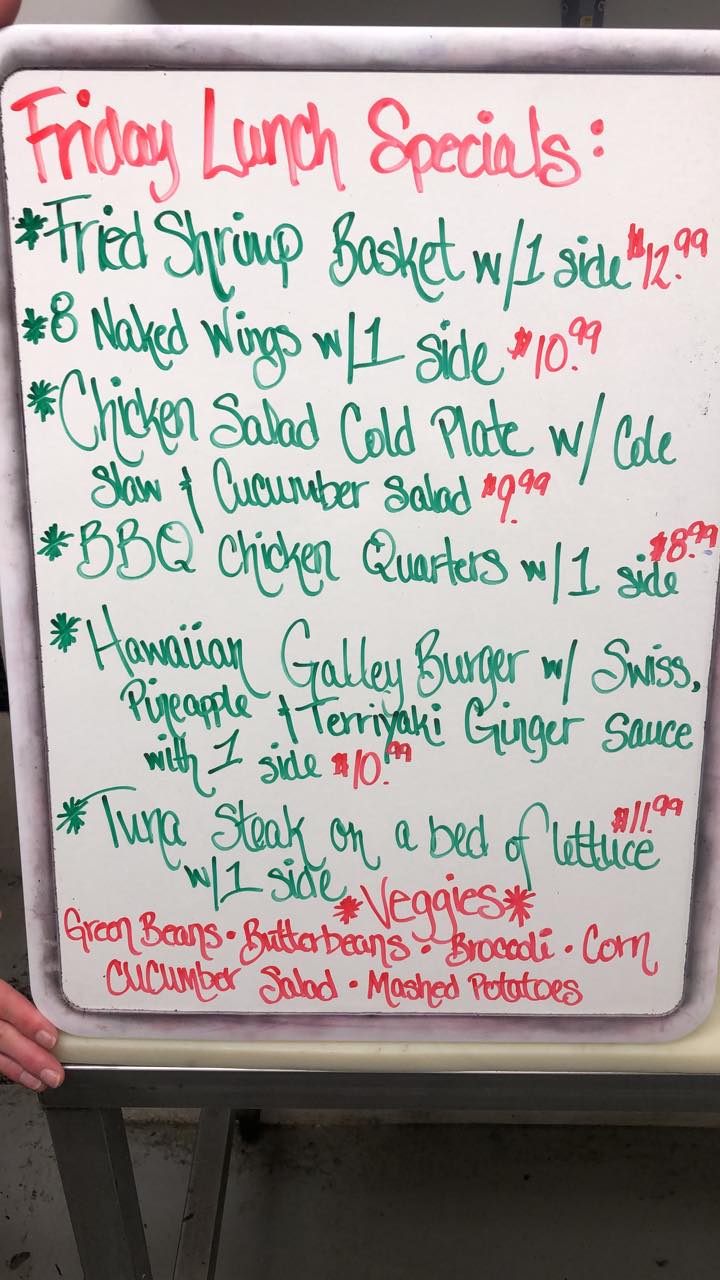 Friday Lunch Specials:
*Fried Shrimp Basket w/1 side $12.99
*8 Naked Wings w/1 side $10.99
*Chicken Salad Cold Plate w/ Cole
Slaw & Cucumber Salad $9.99
*BBQ Chicken Quarters w/1 side $8.99
*Hawaiian Galley Burger w/ Swiss,
Pineapple & Terriyaki Ginger Sauce
with 1 side $10.99
*Tuna Steak on a bed of lettuce $11.99
w/1 side
*Veggies*
Green Beans · Butterbeans · Broccoli · Corn
Cucumber Salad · Mashed Potatoes